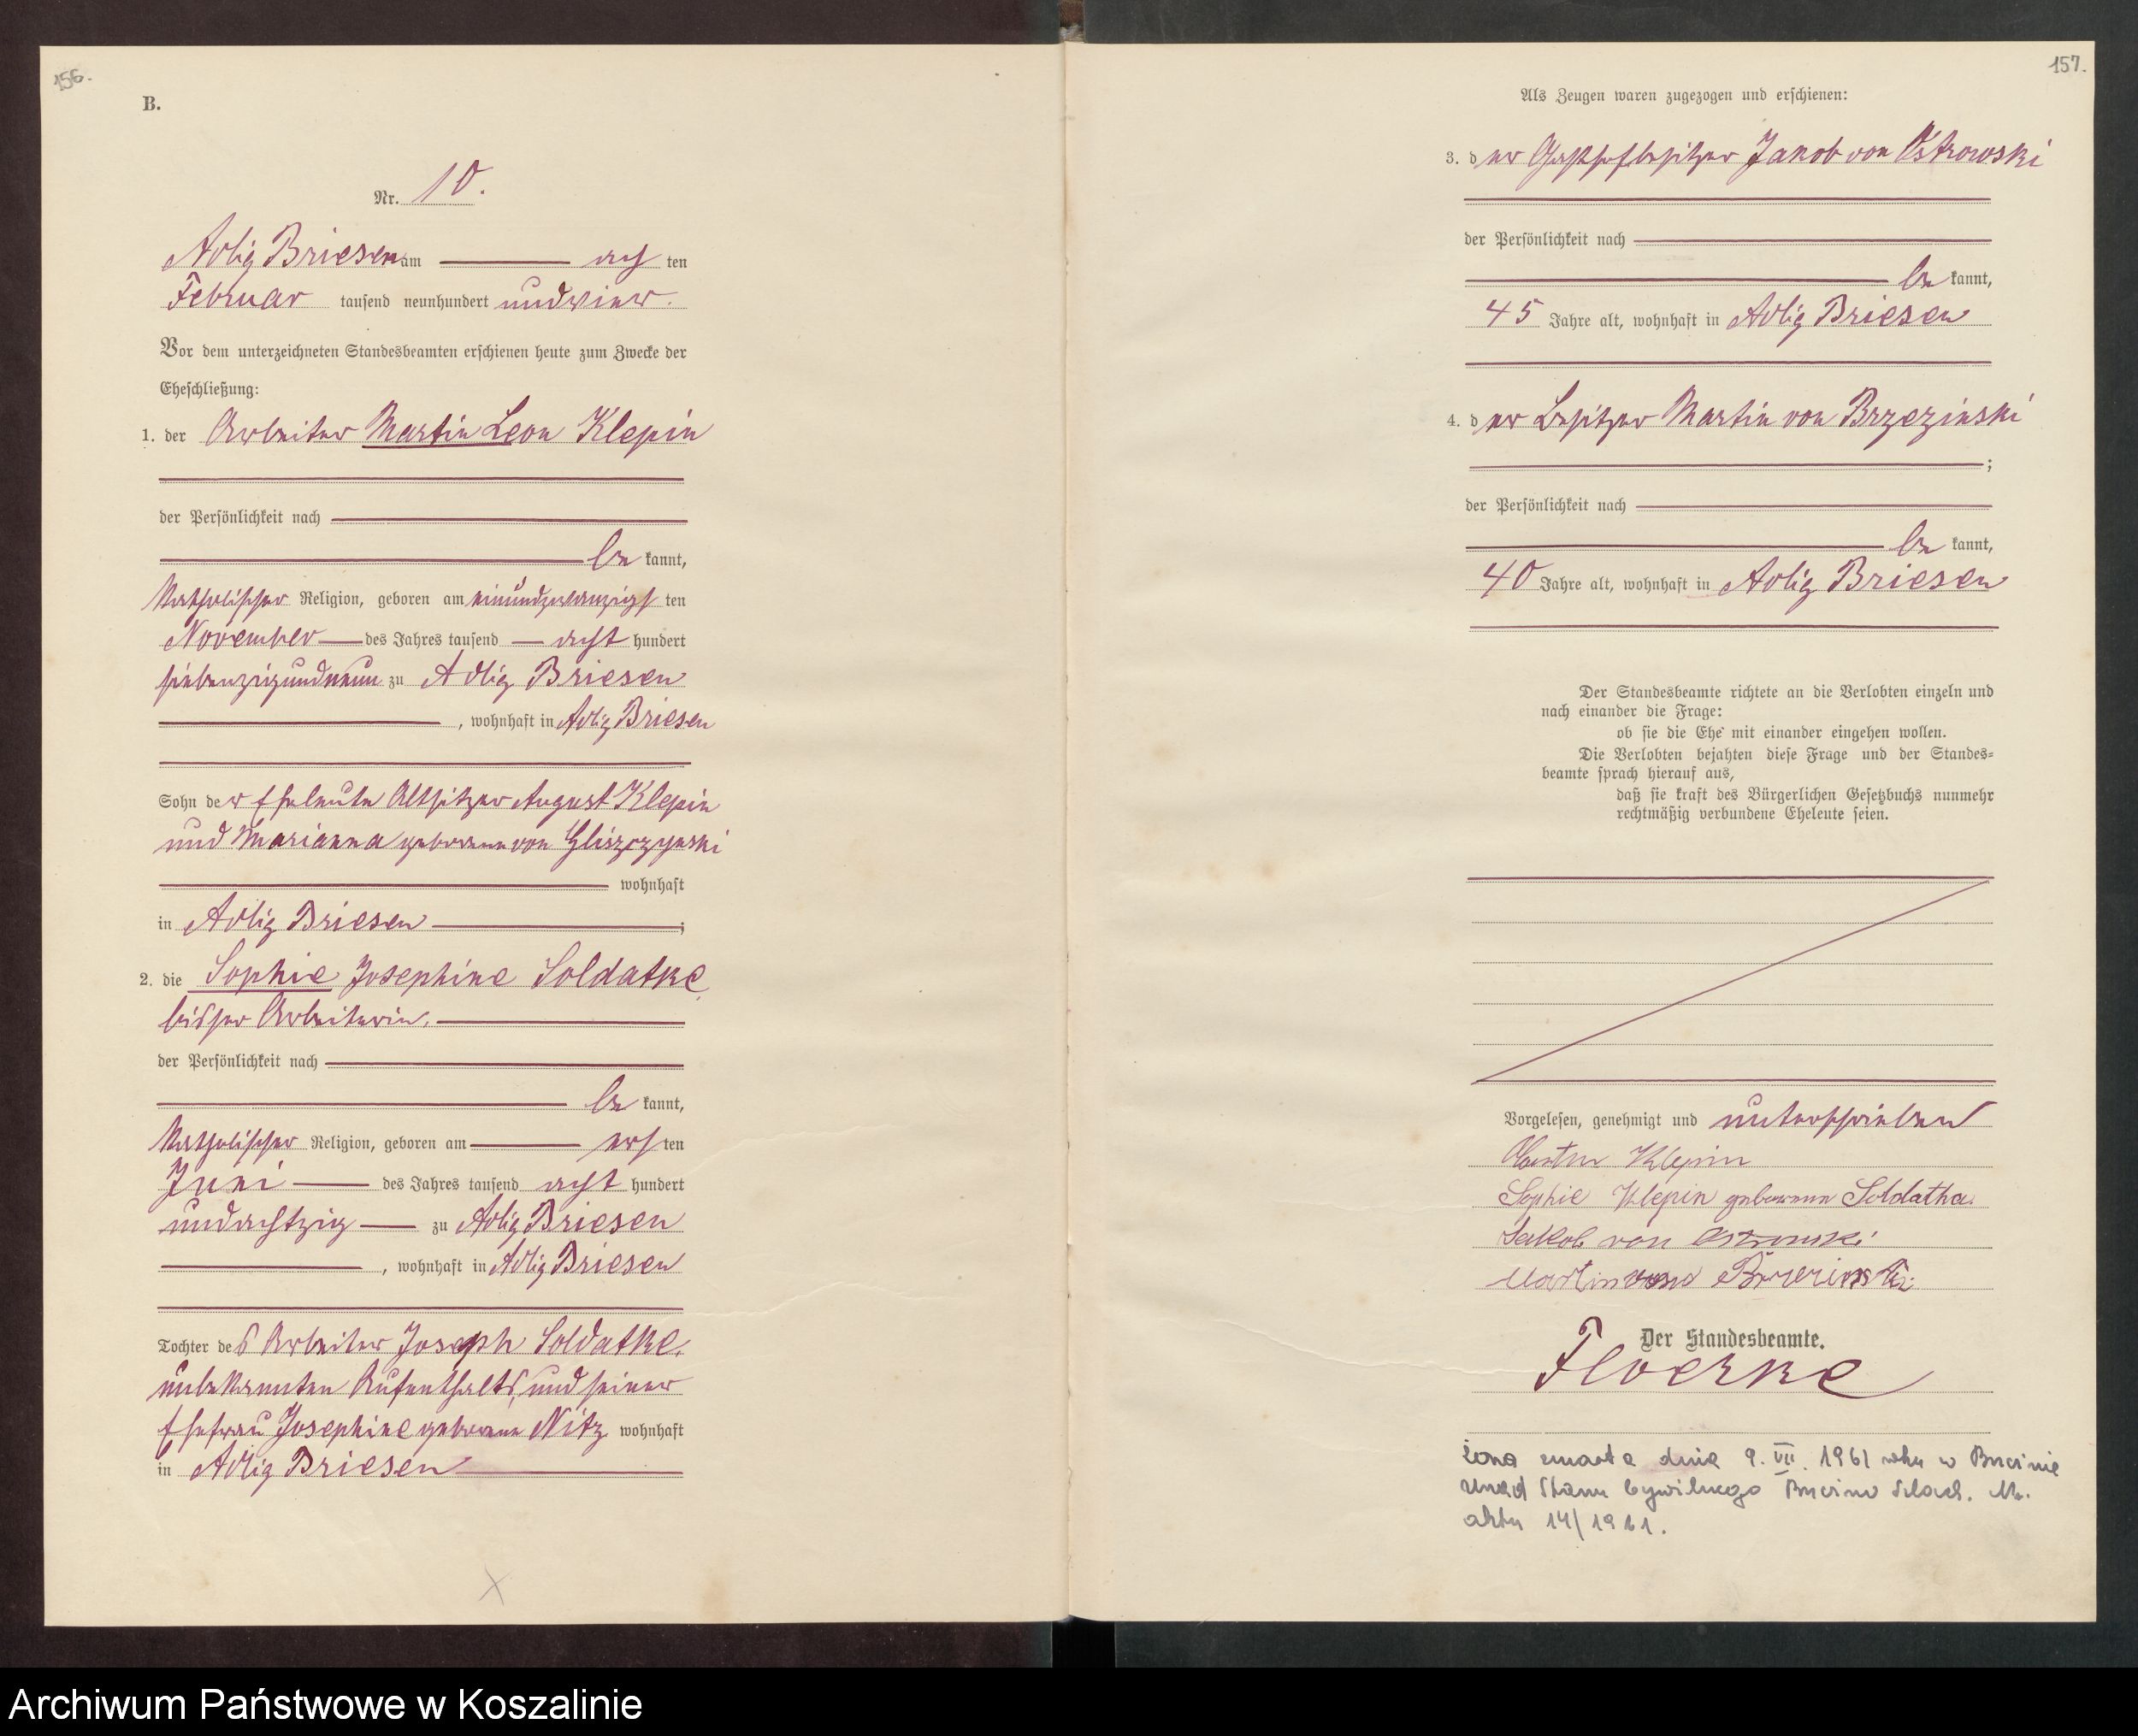 156.
B.
Nr. 10.
Adlig Briesen am ach ten
Februar tausend neunhundert und vier.
Vor dem unterzeichneten Standesbeamten erschienen heute zum Zwecke der
Eheschließung:
1. der Arbeiter Martin Leon Klepin
der Persönlichkeit nach
be kannt,
katholischer Religion, geboren am einundzwanzigs ten
November des Jahres tausend acht hundert
siebenzigundneun zu Adlig Briesen
, wohnhaft in Adlig Briesen
Sohn der Eheleute Altsitzer August Klepin
und Marianna geborene von Gliszczynski
wohnhaft
in Adlig Briesen ;
2. die Sophie Josephine Soldatke
bisher Arbeiterin,
der Persönlichkeit nach
be kannt,
katholischer Religion, geboren am ers ten
Juni des Jahres tausend acht hundert
undachtzig zu Adlig Briesen
, wohnhaft in Adlig Briesen
Tochter des Arbeiter Joseph Soldatke,
unbekannten Aufenthalts, und seiner
Ehefrau Josephine geborene Nitz wohnhaft
in Adlig Briesen
157.
Als Zeugen waren zugezogen und erschienen:
3. der Gasthofbesitzer Jakob von Ostrowski
der Persönlichkeit nach
be kannt,
45 Jahre alt, wohnhaft in Adlig Briesen
4. der Besitzer Martin von Brzezinski
;
der Persönlichkeit nach
be kannt,
40 Jahre alt, wohnhaft in Adlig Briesen
Der Standesbeamte richtete an die Verlobten einzeln und
nach einander die Frage:
ob sie die Ehe mit einander eingehen wollen.
Die Verlobten bejahten diese Frage und der Standes=
beamte sprach hierauf aus,
daß sie kraft des Bürgerlichen Gesetzbuchs nunmehr
rechtmäßig verbundene Eheleute seien.
Vorgelesen, genehmigt und unterschrieben
Martin Klepin
Sophie Klepin geborene Soldathe
Jakob von Ostrowski
Martin von Brzezinski
Der Standesbeamte.
Floerke
żona zmarła dnia 9. VII. 1961 roku w Brzeźnie
Urząd Stanu Cywilnego Brzeźno Szlach. Nr.
aktu 14/1961.
Archiwum Państwowe w Koszalinie